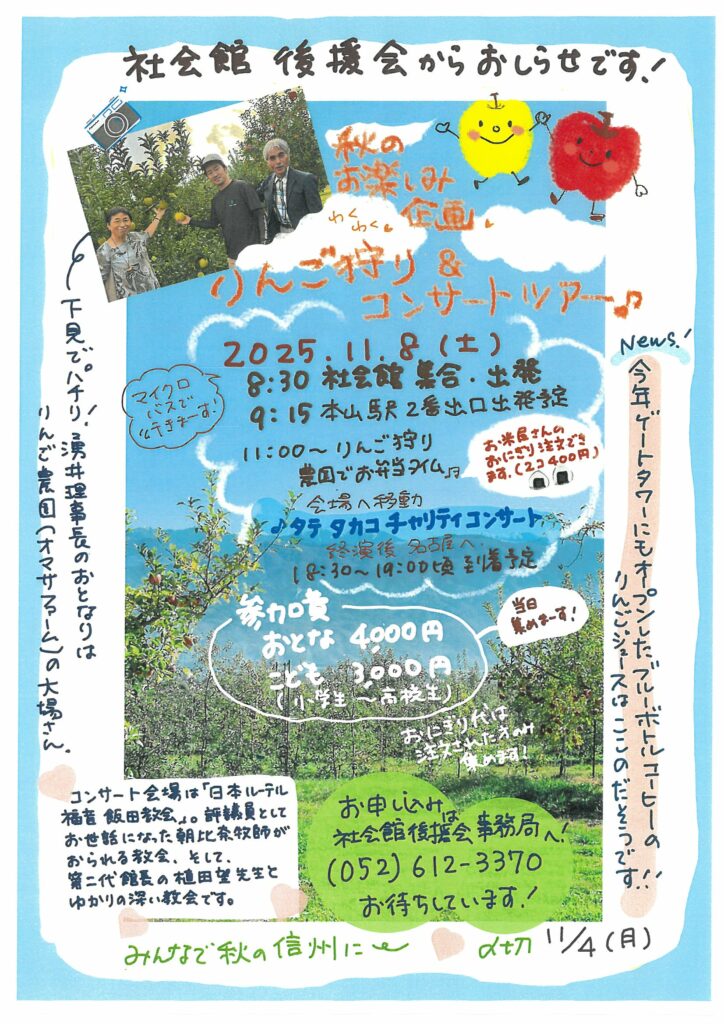 社会館 後援会からおしらせです！
秋の
お楽しみ
わくわく
企画
りんご狩り &
コンサートツアー♫
2025.11.8(土)
8:30 社会館 集合・出発
9:15 本山駅2番出口出発予定
マイクロ
バスで
行きまーす！
11:00〜りんご狩り
農園でお弁当タイム♫
お米屋さんの
おにぎり注文でき
ます。(2コ400円)
会場へ移動
♪タテ タカコ チャリティコンサート
終演後 名古屋へ
18:30〜19:00頃 到着予定
参加費
おとな 4,000円
こども 3,000円
(小学生〜高校生)
当日
集めまーす！
おにぎり代は
注文された方のみ
集めます！
下見でパチリ！湧井理事長のおとなりは
りんご農園(オマサファーム)の大場さん。
News！
今年ゲートタワーにもオープンした、ブルーボトルコーヒーの
りんごジュースはここのだそうです！！
コンサート会場は「日本ルーテル
福音 飯田教会」。評議員として
お世話になった朝比奈牧師が
おられる教会、そして、
第二代館長の植田望先生と
ゆかりの深い教会です。
お申し込みは
社会館後援会事務局へ！
(052)612-3370
お待ちしています！
みんなで秋の信州に
〆切 11/4(月)